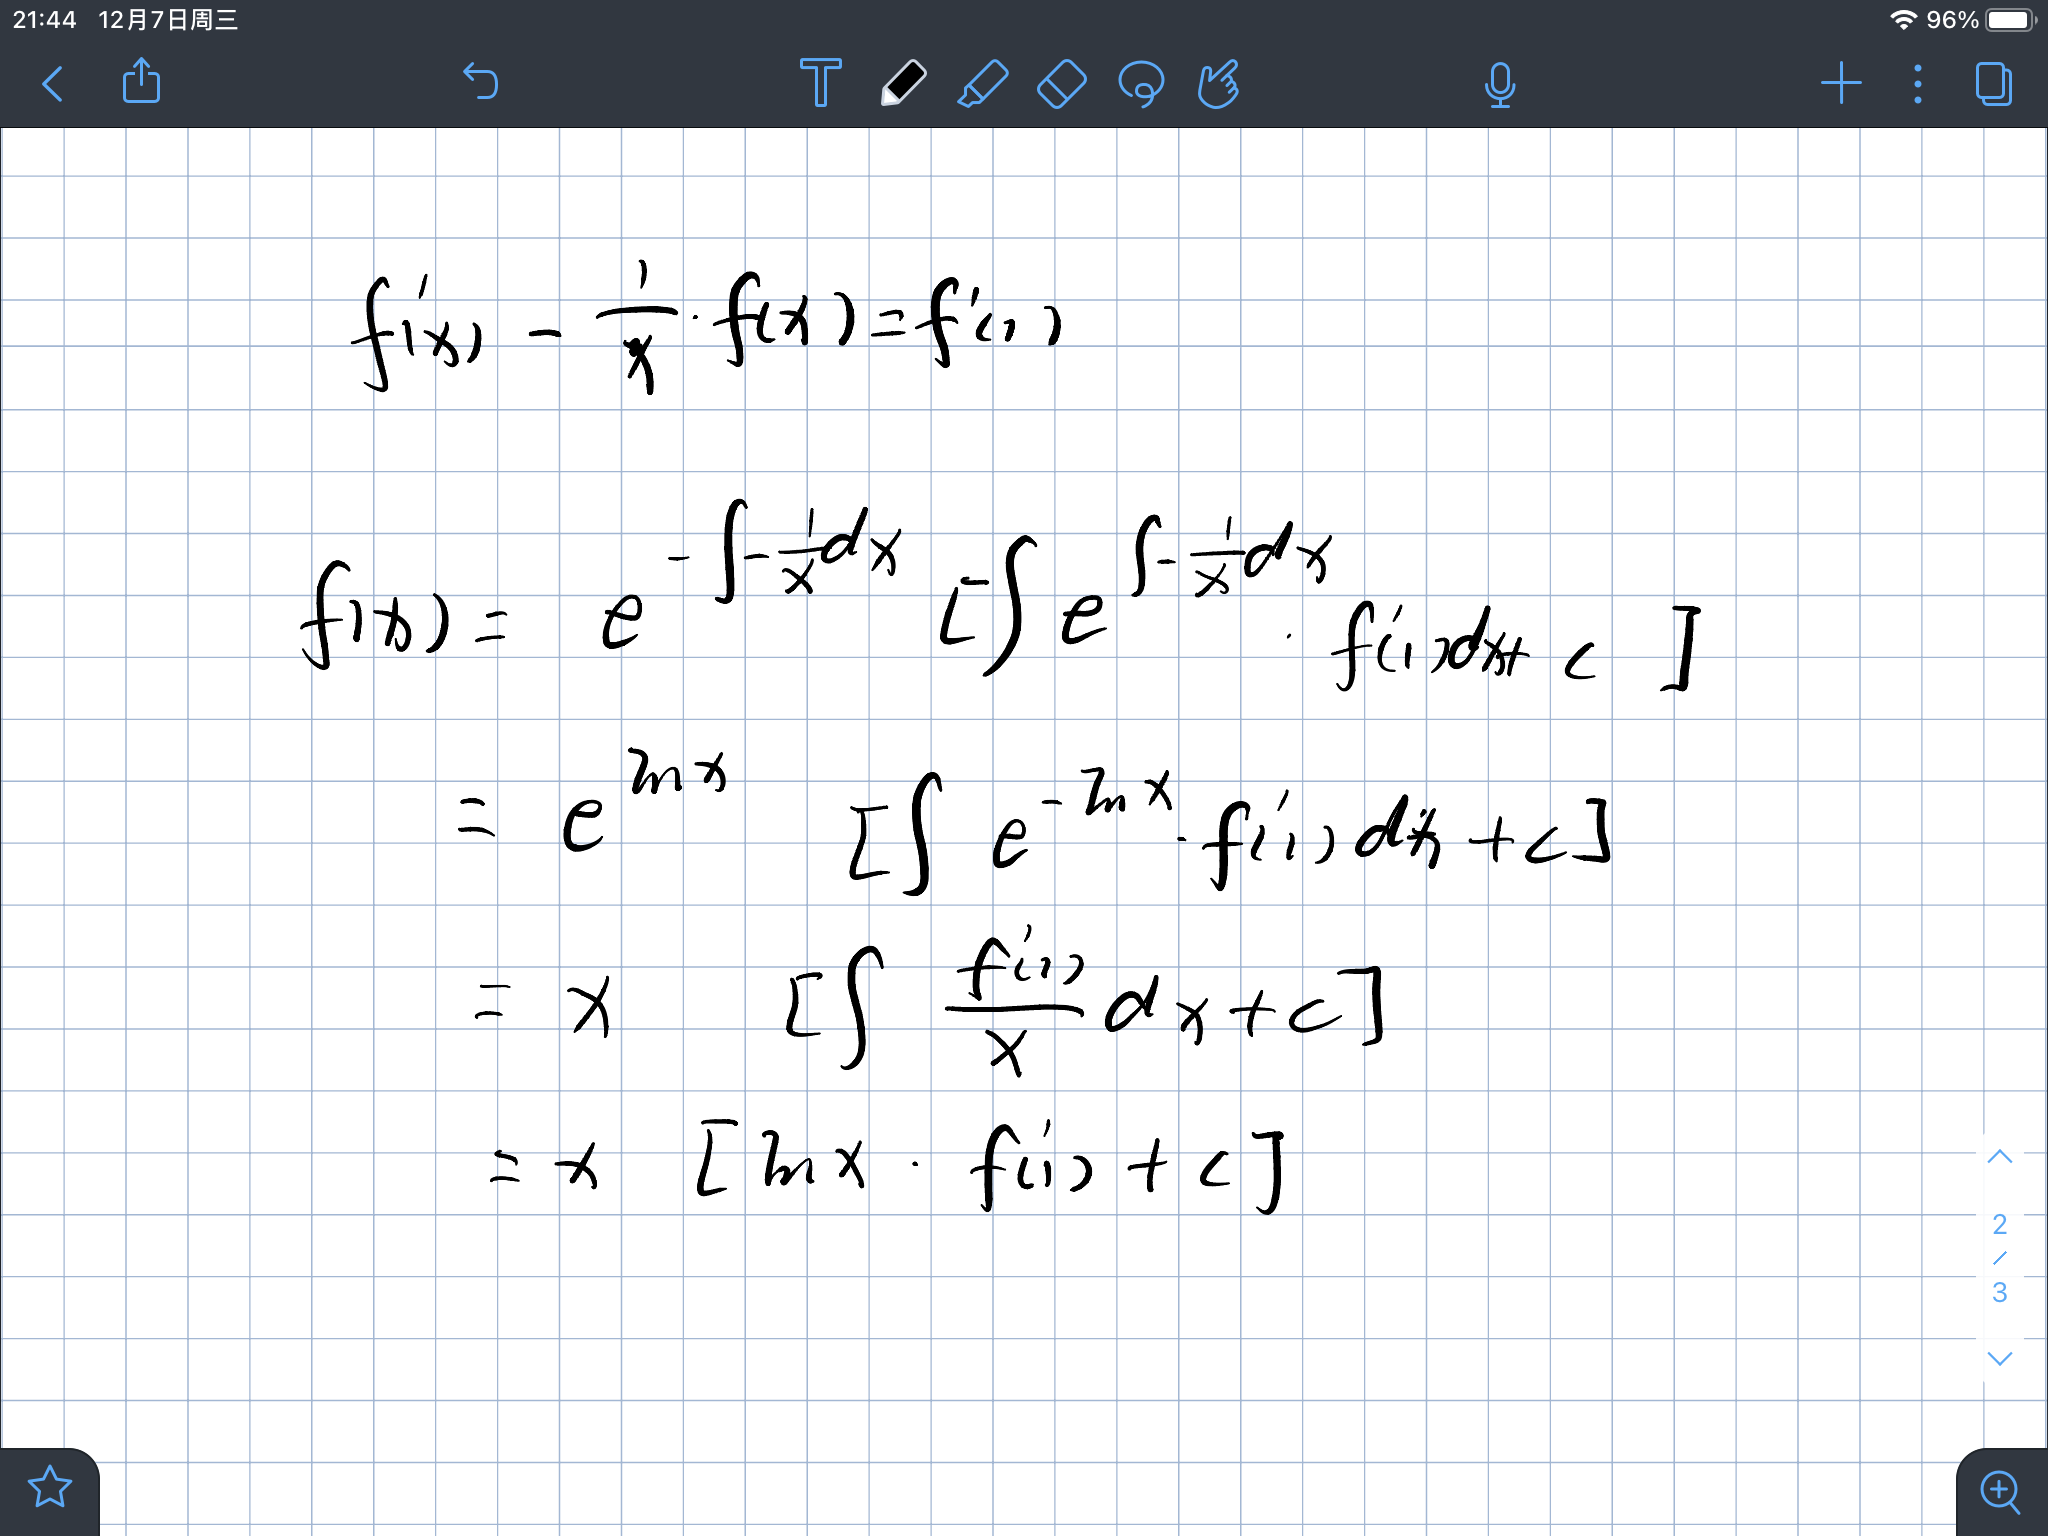 21:44 12月7日周三 96%
T
f'(x) - 1/x · f(x) = f'(1)
f(x) = e^{-∫-1/x dx} [∫ e^{∫-1/x dx} · f'(1)dx + c ]
= e^{ln x} [∫ e^{-ln x} · f'(1) dx + c]
= x [∫ f'(1)/x dx + c]
= x [ln x · f'(1) + c]
2
/
3